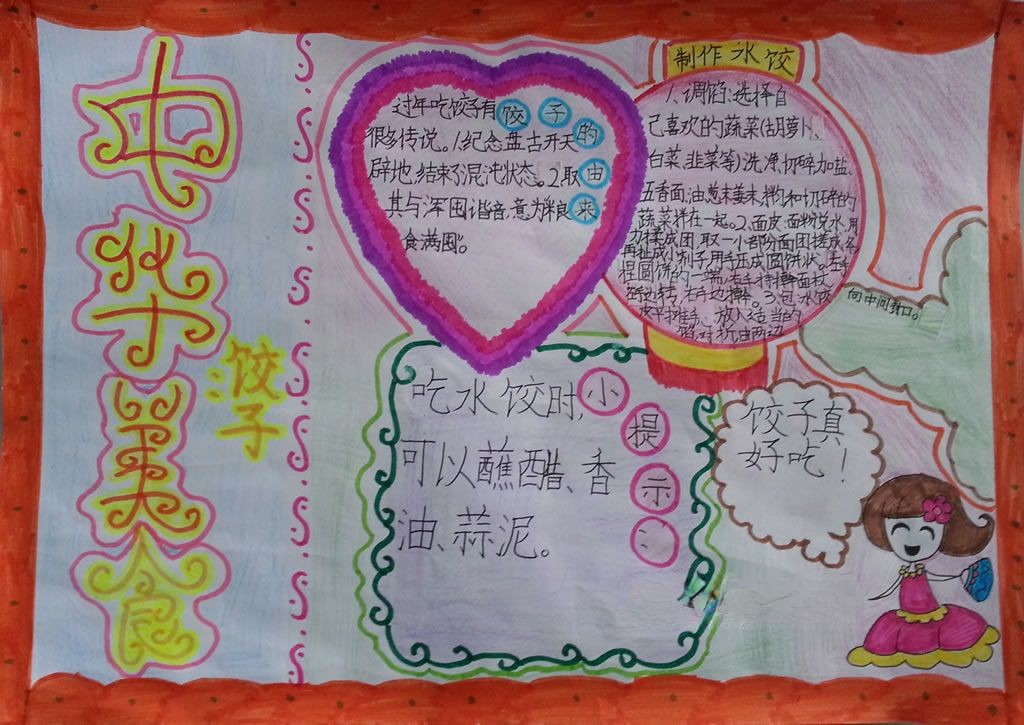 中华美食
饺子
饺子的由来
过年吃饺子有
很多传说。1.纪念盘古开天
辟地,结束了混沌状态。2.取
其与浑囤谐音,意为粮
食满囤。
制作水饺
1、调馅:选择自
己喜欢的蔬菜(胡萝卜、
白菜、韭菜等)洗净,切碎,加盐、
五香面、油、葱末、姜末,拌均和切碎的
蔬菜拌在一起。2、面皮:面粉
成团,取一小部分面团搓成条,
再扯成小剂子,用手压成圆饼状。左手
捏圆饼的一端,右手持擀面杖,
左手边转,右手边擀。3、包水饺
放入适当的
馅,对折,由两边
向中间封口。
小提示:
吃水饺时,
可以蘸醋、香
油、蒜泥。
饺子真
好吃!